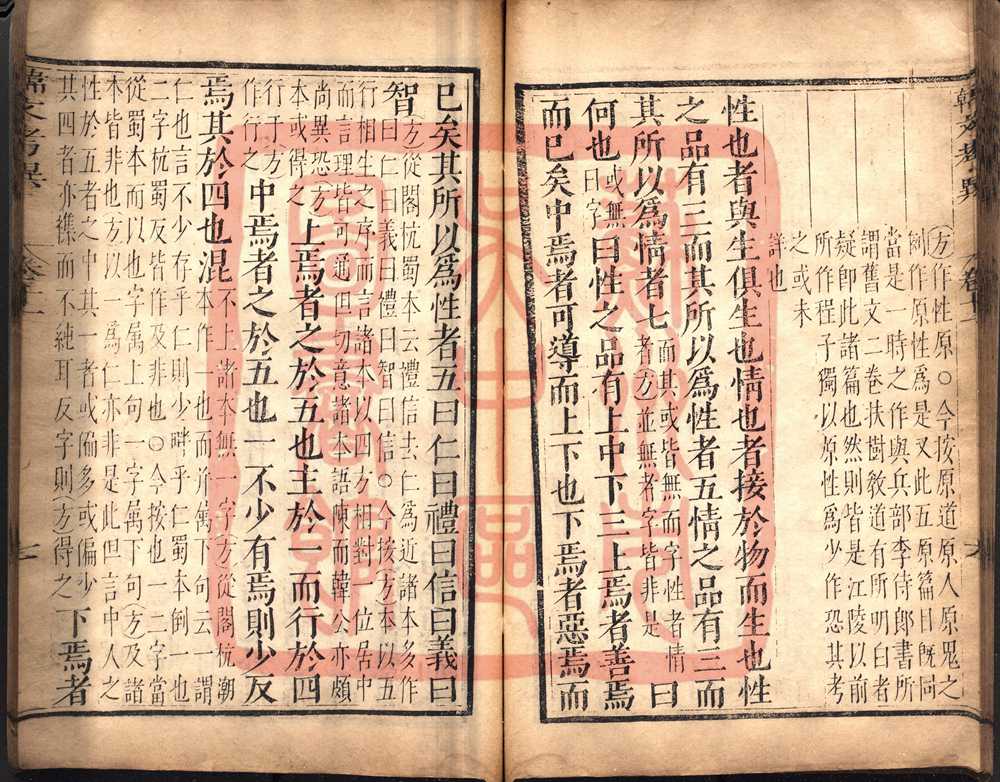 方作性原○今按原道原人原鬼之
例作原性爲是又此五原篇目既同
當是一時之作與兵部李侍郎書所
謂舊文二卷扶樹敎道有所明白者
疑即此諸篇也然則皆是江陵以前
所作程子獨以原性爲少作恐其考
之或未
詳也
性也者與生俱生也情也者接於物而生也性
之品有三而其所以爲性者五情之品有三而
其所以爲情者七而其或皆無而字性者情者方並無者字皆非是曰
何也或無曰字曰性之品有上中下三上焉者善焉
而已矣中焉者可導而上下也下焉者惡焉而
已矣其所以爲性者五曰仁曰禮曰信曰義曰
智方從閣杭蜀本云禮信去仁爲近諸本多作曰仁曰義曰禮曰智曰信○今按方本以五
行相生之序而言諸本以四方相對一位居中
而言理皆可通但一切意諸本語順而韓公亦頗
尚異恐方本或得之上焉者之於五也主於一而行於四
行于方作行之中焉者之於五也一不少有焉則少反
焉其於四也混不上諸本無一字方從閣杭潮本作一也而幷屬下句云一謂
仁也言不少存乎仁則少畔乎仁蜀本倒一也
二字杭蜀反皆作及非也○今按也一二字當
從蜀本而以也字屬上句一字屬下句方及諸
本皆非也方以一爲仁亦非是此但言中人之
性於五者之中其一者或偏多或偏少
其四者亦襍而不純耳反字則方得之下焉者
韓文考異
卷十一